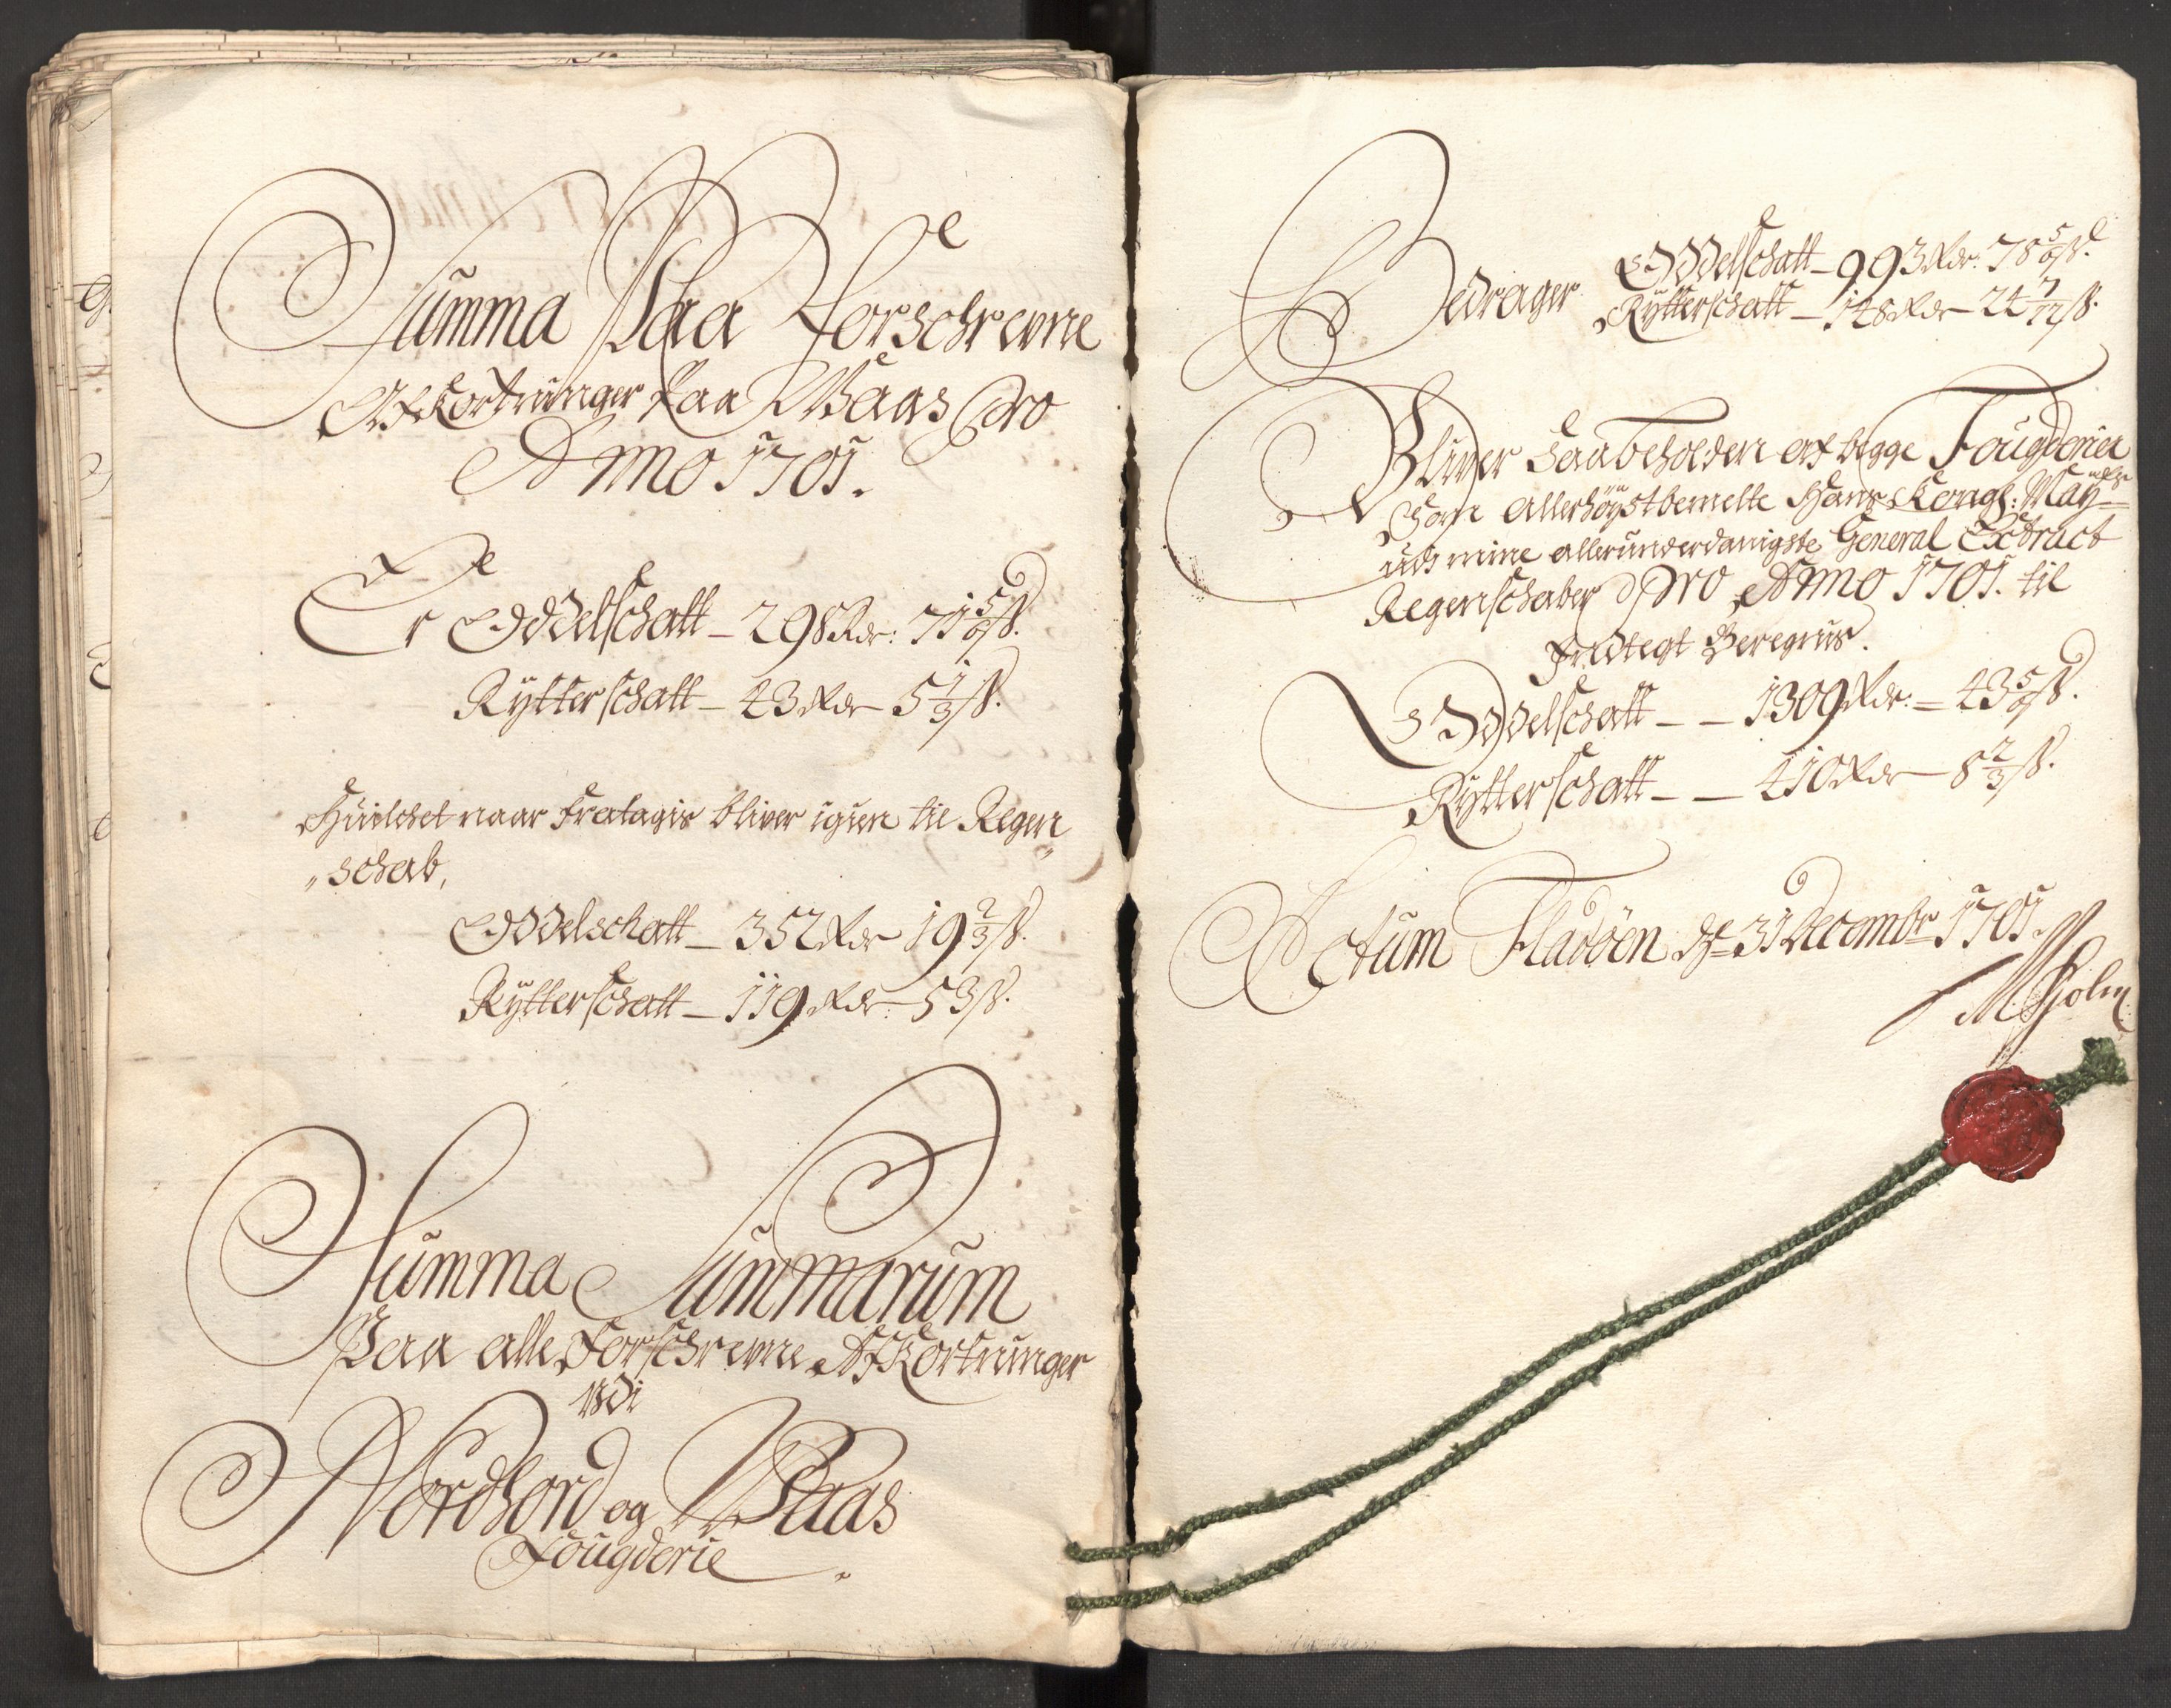 Summa Paa Forschrevne
Afkortninger paa Waas Pro
Anno 1701.
Er Oddelschatt – 298 Rdr: 71 5/6 ß.
Rytterschatt – 43 Rdr – 5 1/3 ß.
Huilchet naar fratagis bliver igien til Regen
„schab,
Oddelschatt – 352 Rdr 19 2/3 ß.
Rytterschatt – 119 Rdr – 53 ß.
Summa Summarum
Paa alle Forschrevne AfKortninger
udi
Nordhord og Waas
Fougderie
Bedrager Oddelschatt – 993 Rdr: 78 5/6 ß.
Rytterschatt – 148 Rdr – 24 7/12 ß.
Bliver saa beholden af begge Fougderier
Som Allerhøystbemelte Hans Kongl: May
udi mine allerunderdanigste General Extract
Regenschaber Pro Anno 1701. til
Oddelschatt – – 1309 Rdr: – 43 5/6 ß.
Rytterschatt – – 410 Rdr – 8 2/3 ß.
Actum Fladöen d 31 Decembr 1701.
M Holm